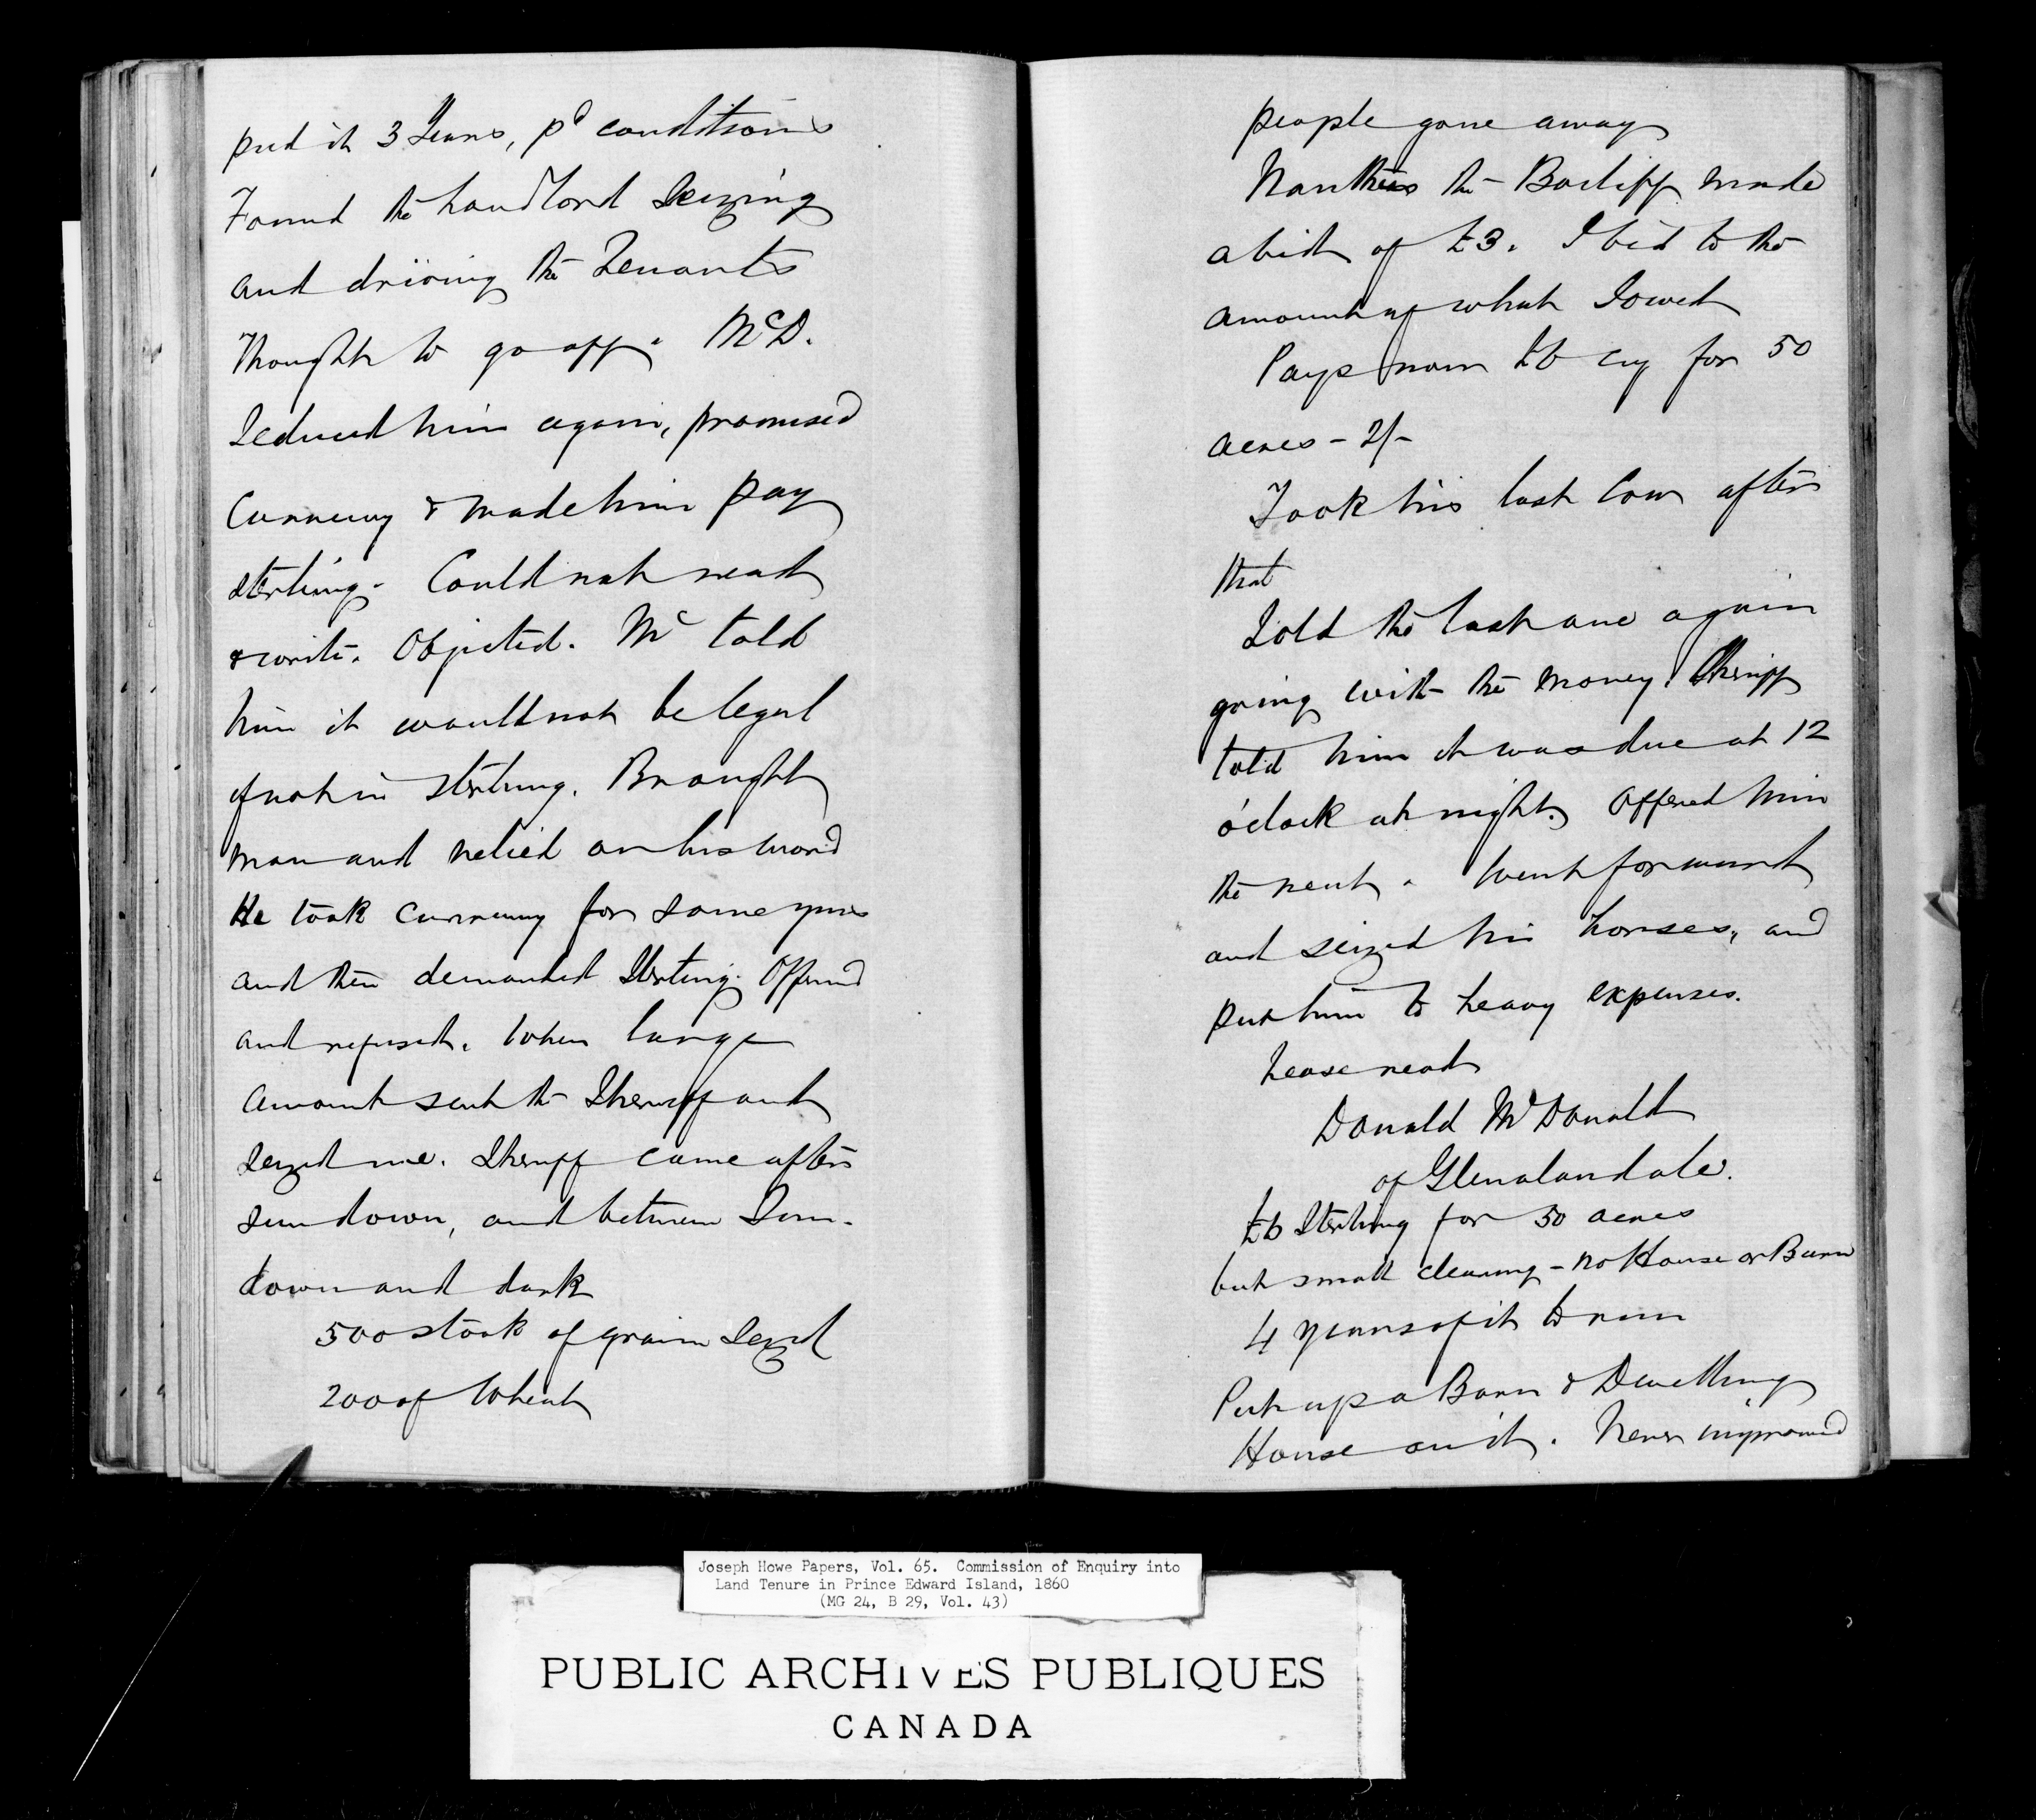 paid it 3 Years, pd conditions
Found the Landlord Seizing
and driving the Tenants
Thought to go off. McD.
Seduced him again, promised
Currency & made him pay
sterling. Could not read
& write. Objected. Mc told
him it would not be legal
if not in sterling. Brought
man and relied on his word
He took currency for some years
and then demanded Sterling. Offered
and refused. When large
amount sent the Sheriff and
seized me. Sheriff came after
sundown, and between Sun-
down and dark
500 stook of grain Seized
200 of Wheat
people gone away
the Bailiff made
a bid of £3. I bid to the
amount of what I owed
Pays now £6 cy for 50
acres - 2/-
Took his last Cow after
that
Sold the last one again
going with the money. Sheriff
told him it was due at 12
o'clock at night. Offered him
the rent. Went forward
and seized his horses, and
put him to heavy expenses.
Lease read
Donald McDonald
of Glenalandale.
Sterling for 50 acres
but small clearing - no House or Barn
4 years of it to run
Put up a Barn & Dwelling
House on it. Never improved
Joseph Howe Papers, Vol. 65. Commission of Enquiry into
Land Tenure in Prince Edward Island, 1860
(MG 24, B 29, Vol. 43)
PUBLIC ARCHIVES PUBLIQUES
CANADA